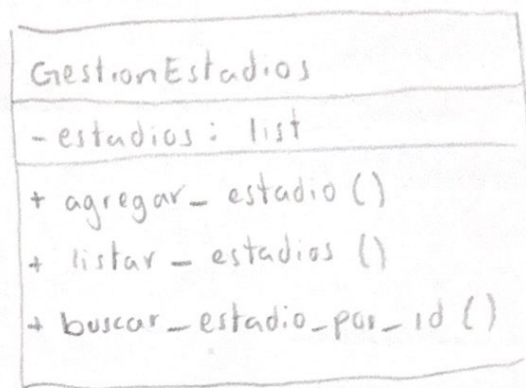 GestionEstadios
- estadios: list
+ agregar_estadio()
+ listar_estadios()
+ buscar_estadio_por_id()